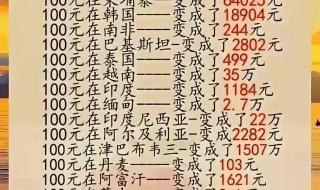 100元在柬埔寨——变成了64025元
100元在韩国——变成了18904元
100元在南非——变成了244元
100元在巴基斯坦-变成了2802元
100元在泰国——变成了499元
100元在越南——变成了35万
100元在印度——变成了1184元
100元在缅甸——变成了2.7万
100元在印度尼西亚-变成了22万
100元在阿尔及利亚-变成了2282元
100元在津巴布韦三-变成了1507万
100元在丹麦——变成了103元
100元在阿富汗——变成了1621元